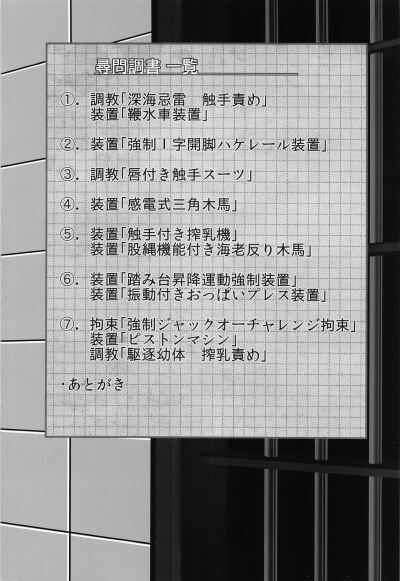 尋問調書 一覧
①. 調教「深海忌雷 触手責め」
装置「鞭水車装置」
②. 装置「強制I字開脚ハケレール装置」
③. 調教「唇付き触手スーツ」
④. 装置「感電式三角木馬」
⑤. 装置「触手付き搾乳機」
装置「股縄機能付き海老反り木馬」
⑥. 装置「踏み台昇降運動強制装置」
装置「振動付きおっぱいプレス装置」
⑦. 拘束「強制ジャックオーチャレンジ拘束」
装置「ピストンマシン」
調教「駆逐幼体 搾乳責め」
・あとがき